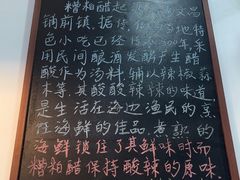 糟粕醋起
铺前镇，据
地特
色小吃已经
年，采
用民间酿酒发酵产生醋
酸作为汤料，辅以辣椒蒜
末等，其酸酸辣辣的味道
是生活在海边渔民的烹
任海鲜的佳品，煮熟的
海鲜锁住了其鲜味时
糟粕醋保持酸辣的原味